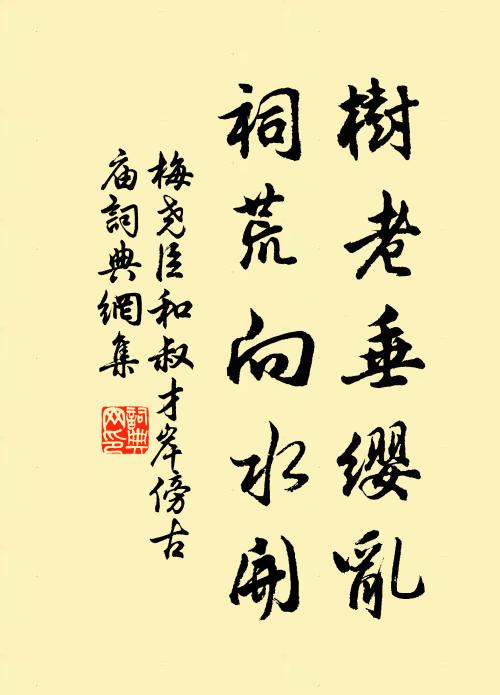 樹老垂纓亂
祠荒向水開
梅堯臣和叔才岸傍古
庙詞典網集
詞典网印